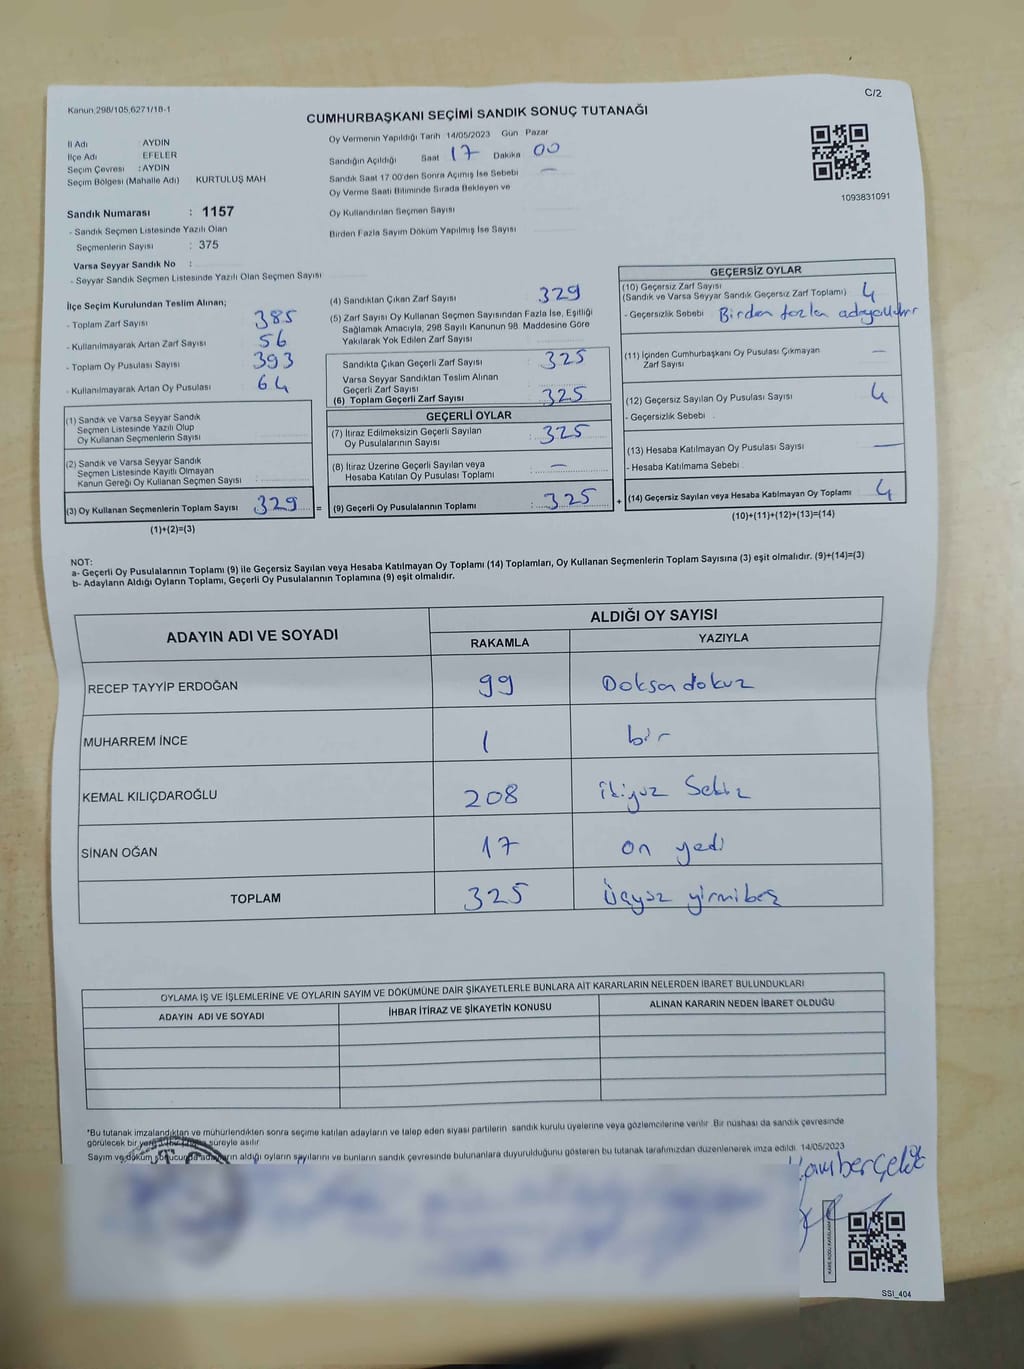 Kanun 298/105,6271/18-1
C/2
CUMHURBAŞKANI SEÇİMİ SANDIK SONUÇ TUTANAĞI
İl Adı : AYDIN
İlçe Adı : EFELER
Seçim Çevresi : AYDIN
Seçim Bölgesi (Mahalle Adı) KURTULUŞ MAH
Sandık Numarası : 1157
- Sandık Seçmen Listesinde Yazılı Olan
Seçmenlerin Sayısı : 375
Varsa Seyyar Sandık No :
- Seyyar Sandık Seçmen Listesinde Yazılı Olan Seçmen Sayısı
Oy Vermenin Yapıldığı Tarih 14/05/2023 Gün Pazar
Sandığın Açıldığı Saat 17 Dakika 00
Sandık Saat 17 00'den Sonra Açımış İse Sebebi —
Oy Verme Saati Bitiminde Sırada Bekleyen ve
Oy Kullandırılan Seçmen Sayısı
Birden Fazla Sayım Döküm Yapılmış İse Sayısı
1093831091
İlçe Seçim Kurulundan Teslim Alınan;
- Toplam Zarf Sayısı 385
- Kullanılmayarak Artan Zarf Sayısı 56
- Toplam Oy Pusulası Sayısı 393
- Kullanılmayarak Artan Oy Pusulası 64
(1) Sandık ve Varsa Seyyar Sandık
Seçmen Listesinde Yazılı Olup
Oy Kullanan Seçmenlerin Sayısı
(2) Sandık ve Varsa Seyyar Sandık
Seçmen Listesinde Kayıtlı Olmayan
Kanun Gereği Oy Kullanan Seçmen Sayısı :
(3) Oy Kullanan Seçmenlerin Toplam Sayısı 329 =
(1)+(2)=(3)
(4) Sandıktan Çıkan Zarf Sayısı 329
(5) Zarf Sayısı Oy Kullanan Seçmen Sayısından Fazla İse, Eşitliği
Sağlamak Amacıyla, 298 Sayılı Kanunun 98. Maddesine Göre
Yakılarak Yok Edilen Zarf Sayısı
Sandıkta Çıkan Geçerli Zarf Sayısı 325
Varsa Seyyar Sandıktan Teslim Alınan
Geçerli Zarf Sayısı
(6) Toplam Geçerli Zarf Sayısı 325
GEÇERLİ OYLAR
(7) İtiraz Edilmeksizin Geçerli Sayılan
Oy Pusulalarının Sayısı : 325
(8) İtiraz Üzerine Geçerli Sayılan veya
Hesaba Katılan Oy Pusulası Toplamı : —
(9) Geçerli Oy Pusulalarının Toplamı : 325 +
GEÇERSİZ OYLAR
(10) Geçersiz Zarf Sayısı
(Sandık ve Varsa Seyyar Sandık Geçersiz Zarf Toplamı) 4
- Geçersizlik Sebebi Birden fazla
(11) İçinden Cumhurbaşkanı Oy Pusulası Çıkmayan
Zarf Sayısı —
(12) Geçersiz Sayılan Oy Pusulası Sayısı 4
- Geçersizlik Sebebi :
(13) Hesaba Katılmayan Oy Pusulası Sayısı —
- Hesaba Katılmama Sebebi
(14) Geçersiz Sayılan veya Hesaba Katılmayan Oy Toplamı 4
(10)+(11)+(12)+(13)=(14)
NOT:
a- Geçerli Oy Pusulalarının Toplamı (9) ile Geçersiz Sayılan veya Hesaba Katılmayan Oy Toplamı (14) Toplamları, Oy Kullanan Seçmenlerin Toplam Sayısına (3) eşit olmalıdır. (9)+(14)=(3)
b- Adayların Aldığı Oyların Toplamı, Geçerli Oy Pusulalarının Toplamına (9) eşit olmalıdır.
ADAYIN ADI VE SOYADI ALDIĞI OY SAYISI
RAKAMLA YAZIYLA
RECEP TAYYİP ERDOĞAN 99 Doksandokuz
MUHARREM İNCE 1 bir
KEMAL KILIÇDAROĞLU 208 ikiyüz Sekiz
SİNAN OĞAN 17 on yedi
TOPLAM 325 Üçyüz yirmibeş
OYLAMA İŞ VE İŞLEMLERİNE VE OYLARIN SAYIM VE DÖKÜMÜNE DAİR ŞİKAYETLERLE BUNLARA AİT KARARLARIN NELERDEN İBARET BULUNDUKLARI
ADAYIN ADI VE SOYADI İHBAR İTİRAZ VE ŞİKAYETİN KONUSU ALINAN KARARIN NEDEN İBARET OLDUĞU
*Bu tutanak imzalandıktan ve mühürlendikten sonra seçime katılan adayların ve talep eden siyasi partilerin sandık kurulu üyelerine veya gözlemcilerine verilir. Bir nüshası da sandık çevresinde
görülecek bir yere süreyle asılır.
Sayım ve döküm sonucunda adayların aldığı oyların sayılarını ve bunların sandık çevresinde bulunanlara duyurulduğunu gösteren bu tutanak tarafımızdan düzenlenerek imza edildi. 14/05/2023
SSI_404